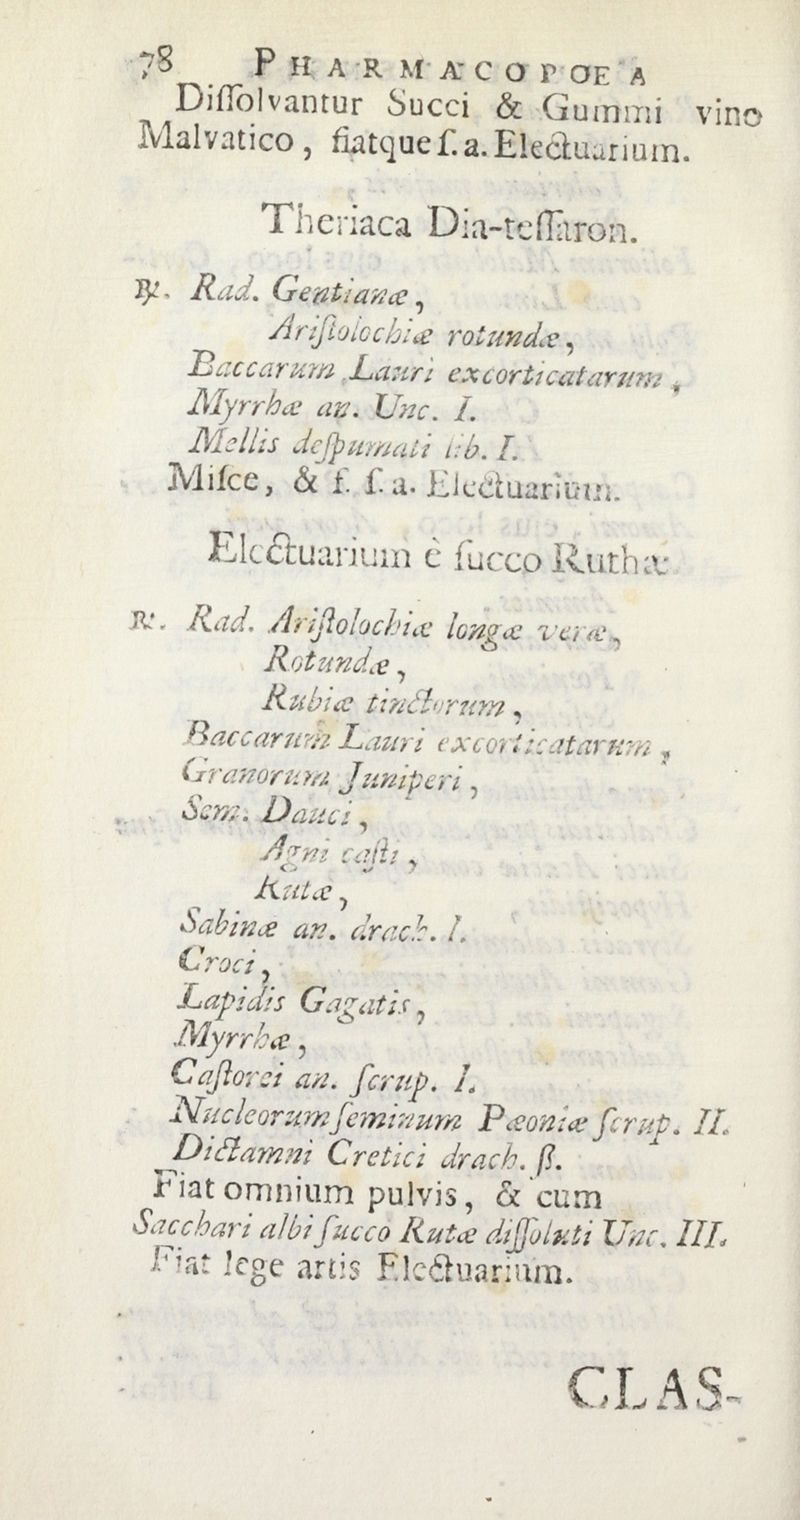 78 PHARMACOPOEA
Diſſolvantur Succi & Gummi vino
Malvatico, fiatque ſ. a. Electuarium.
Theriaca Dia-teſſaron.
℞. Rad. Gentianæ,
Ariſtolochiæ rotundæ,
Baccarum Lauri excorticatarum,
Myrrhæ an. Unc. I.
Mellis deſpumati lib. I.
Miſce, & f. ſ. a. Electuarium.
Electuarium è ſucco Ruthæ
℞. Rad. Ariſtolochiæ longæ veræ,
Rotundæ,
Rubiæ tinctorum,
Baccarum Lauri excorticatarum,
Granorum Juniperi,
Sem. Dauci,
Agni caſti,
Rutæ,
Sabinæ an. drach. I.
Croci,
Lapidis Gagatis,
Myrrhæ,
Caſtorei an. ſcrup. I.
Nucleorum ſeminum Pæoniæ ſcrup. II.
Dictamni Cretici drach. ß.
Fiat omnium pulvis, & cum
Sacchari albi ſucco Rutæ diſſoluti Unc. III.
Fiat lege artis Electuarium.
CLAS-